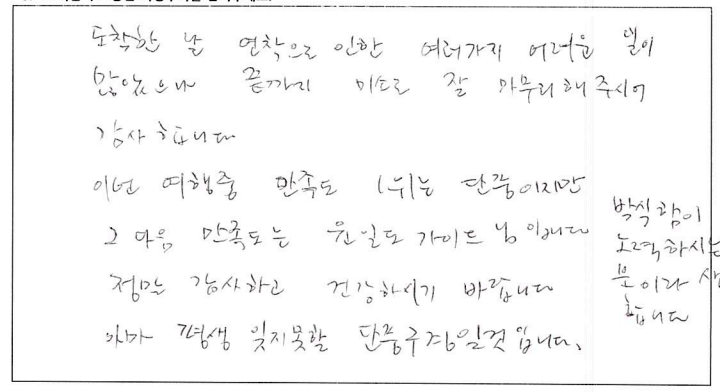 도착한 날 연착으로 인한 여러가지 어려운 일이
많았으나 끝까지 미소로 잘 마무리해 주시어
감사합니다
이번 여행중 만족도 1위는 단풍이지만
그 다음 만족도는 원일도 가이드 님 입니다
정말 감사하고 건강하시기 바랍니다
아마 평생 잊지못할 단풍구경일것 입니다.
박식함이
노력하시는
분이라
합니다